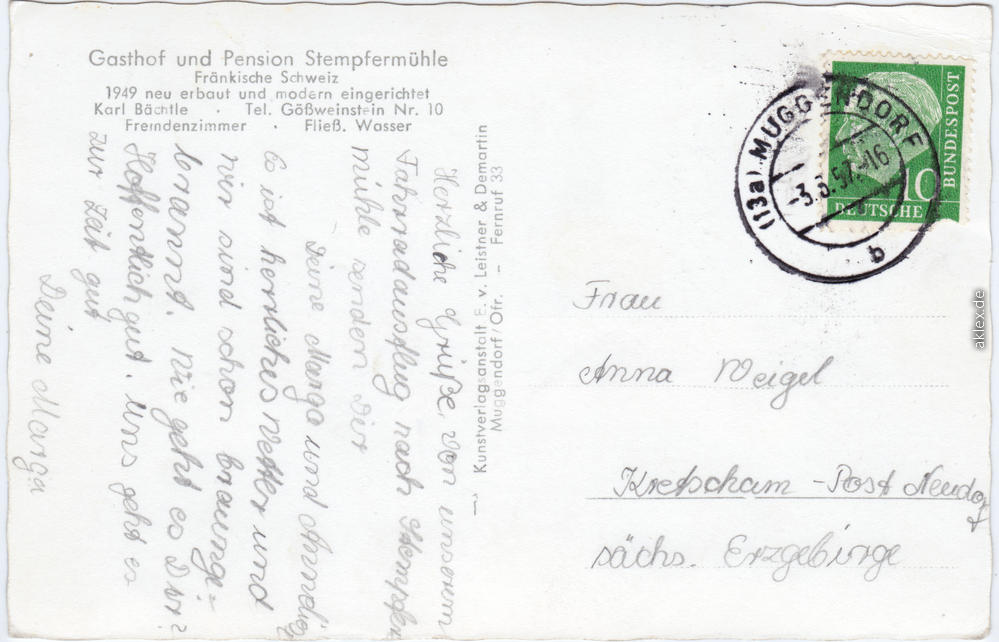 Gasthof und Pension Stempfermühle
Fränkische Schweiz
1949 neu erbaut und modern eingerichtet
Karl Bächtle · Tel. Gößweinstein Nr. 10
Fremdenzimmer · Fließ. Wasser
Herzliche Grüße von unserem
Fahrradausflug nach Stempfer
mühle senden Dir
Deine Marga und Anndl
Es ist herrliches Wetter und
wir sind schon braunge=
brannt. Wie geht es Dir?
Hoffentlich gut. Uns geht es
zur Zeit gut
Deine Marga
Kunstverlagsanstalt E. v. Leistner & Demartin
Muggendorf/Ofr. – Fernruf 33
(13a) MUGGENDORF
-3.8.57.-16
b
10
DEUTSCHE
BUNDESPOST
Frau
Anna Weigel
Kretscham-Post Neudorf
sächs. Erzgebirge
aklex.de